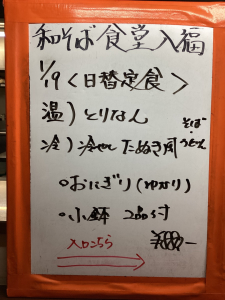 和そば食堂入福
1/19 <日替定食>
温)とりなん
冷)冷やしたぬき風
そば・うどん
○おにぎり(ゆかり)
○小鉢 2品付
入口こちら